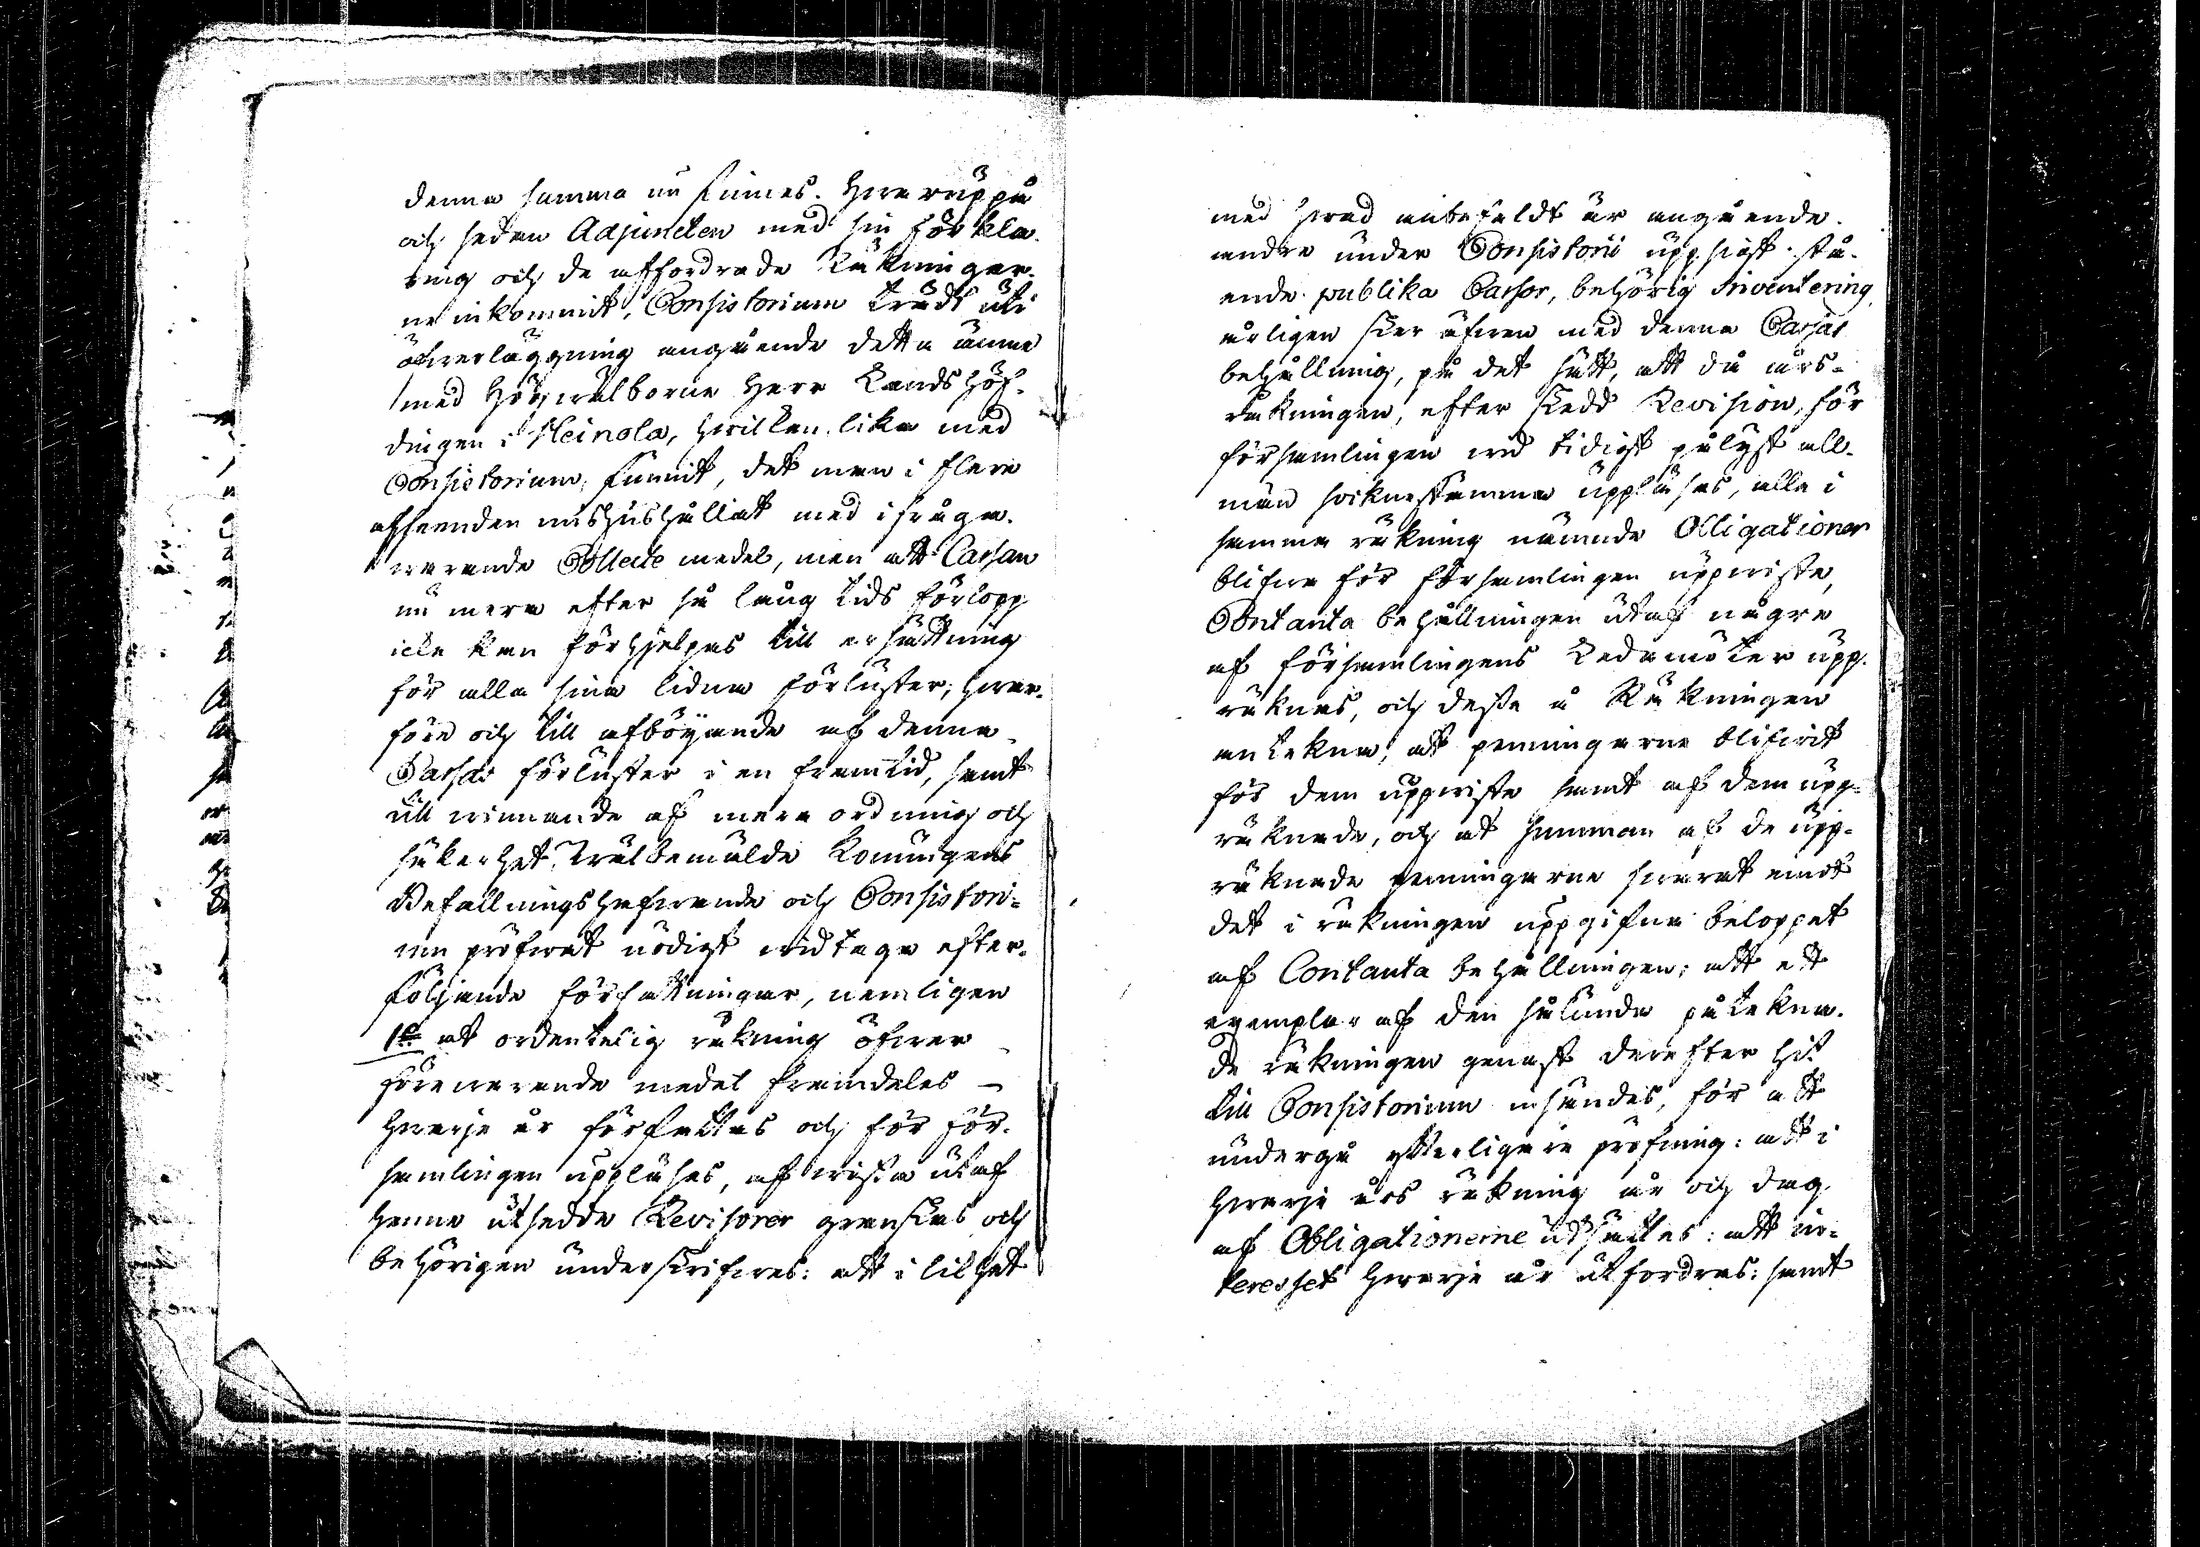 denna summa nu finnes. Hvaruppå
och sedan Adjuncten med sin förkla-
ring och de affordrade Räkningar-
ne inkommit, Consistorium trädt uti
öfverläggning angående detta ämne
med Högvälborne Herr Landshöf-
dingen i Heinola, hvilken lika med
Consistorium funnit, det man i flere
afseenden mishushållat med ifråga-
varande Collecte medel, men att Cassan
nu mera efter så lång tids förlopp
icke kan förhjelpas till ersättning
för alla sina lidna förluster; hvar-
före och till afböjande af denna
Cassas förluster i en framtid, samt
till vinnande af mera ordning och
säkerhet, Välbemälde Konungens
Befallningshafvande och Consistori-
um pröfvat nödigt vidtaga efter-
följande författningar, nemligen
1o at ordentelig räkning öfver
förevarande medel framdeles
hvarje år författas och för för-
samlingen uppläses, af vissa utaf
henne utsedde Revisorer granskas och
behörigen underskrifves: att i likhet
med hvad anbefaldt är angående
andre under Consistorii uppsigt stå-
ende publika Cassor, behörig Inventering
årligen sker äfven med denna Cassas
behållning, på det sätt, att då års-
räkningen, efter skedd Revision, för
församlingen vid tidigt pålyst all-
män socknestämma uppläses, alla i
samma räkning nämnde Obligationer
blifva för församlingen uppviste,
Contanta behållningen utaf några
af församlingens Ledamöter upp-
räknas, och desse å Räkningen
antekna, att penningarne blifvit
för dem uppviste samt af dem upp-
räknade, och at summan af de upp-
räknade penningarne svarat emot
det i räkningen uppgifna beloppet
af Contanta behållningen: att ett
exemplar af den sålunda påtekna-
de räkningen genast derefter hit
till Consistorium insändes, för att
undergå ytterligare pröfning: att i
hvarje års räkning år och dag
af Obligationerne utsättes: att in-
teresset hvarje år utfordras: samt